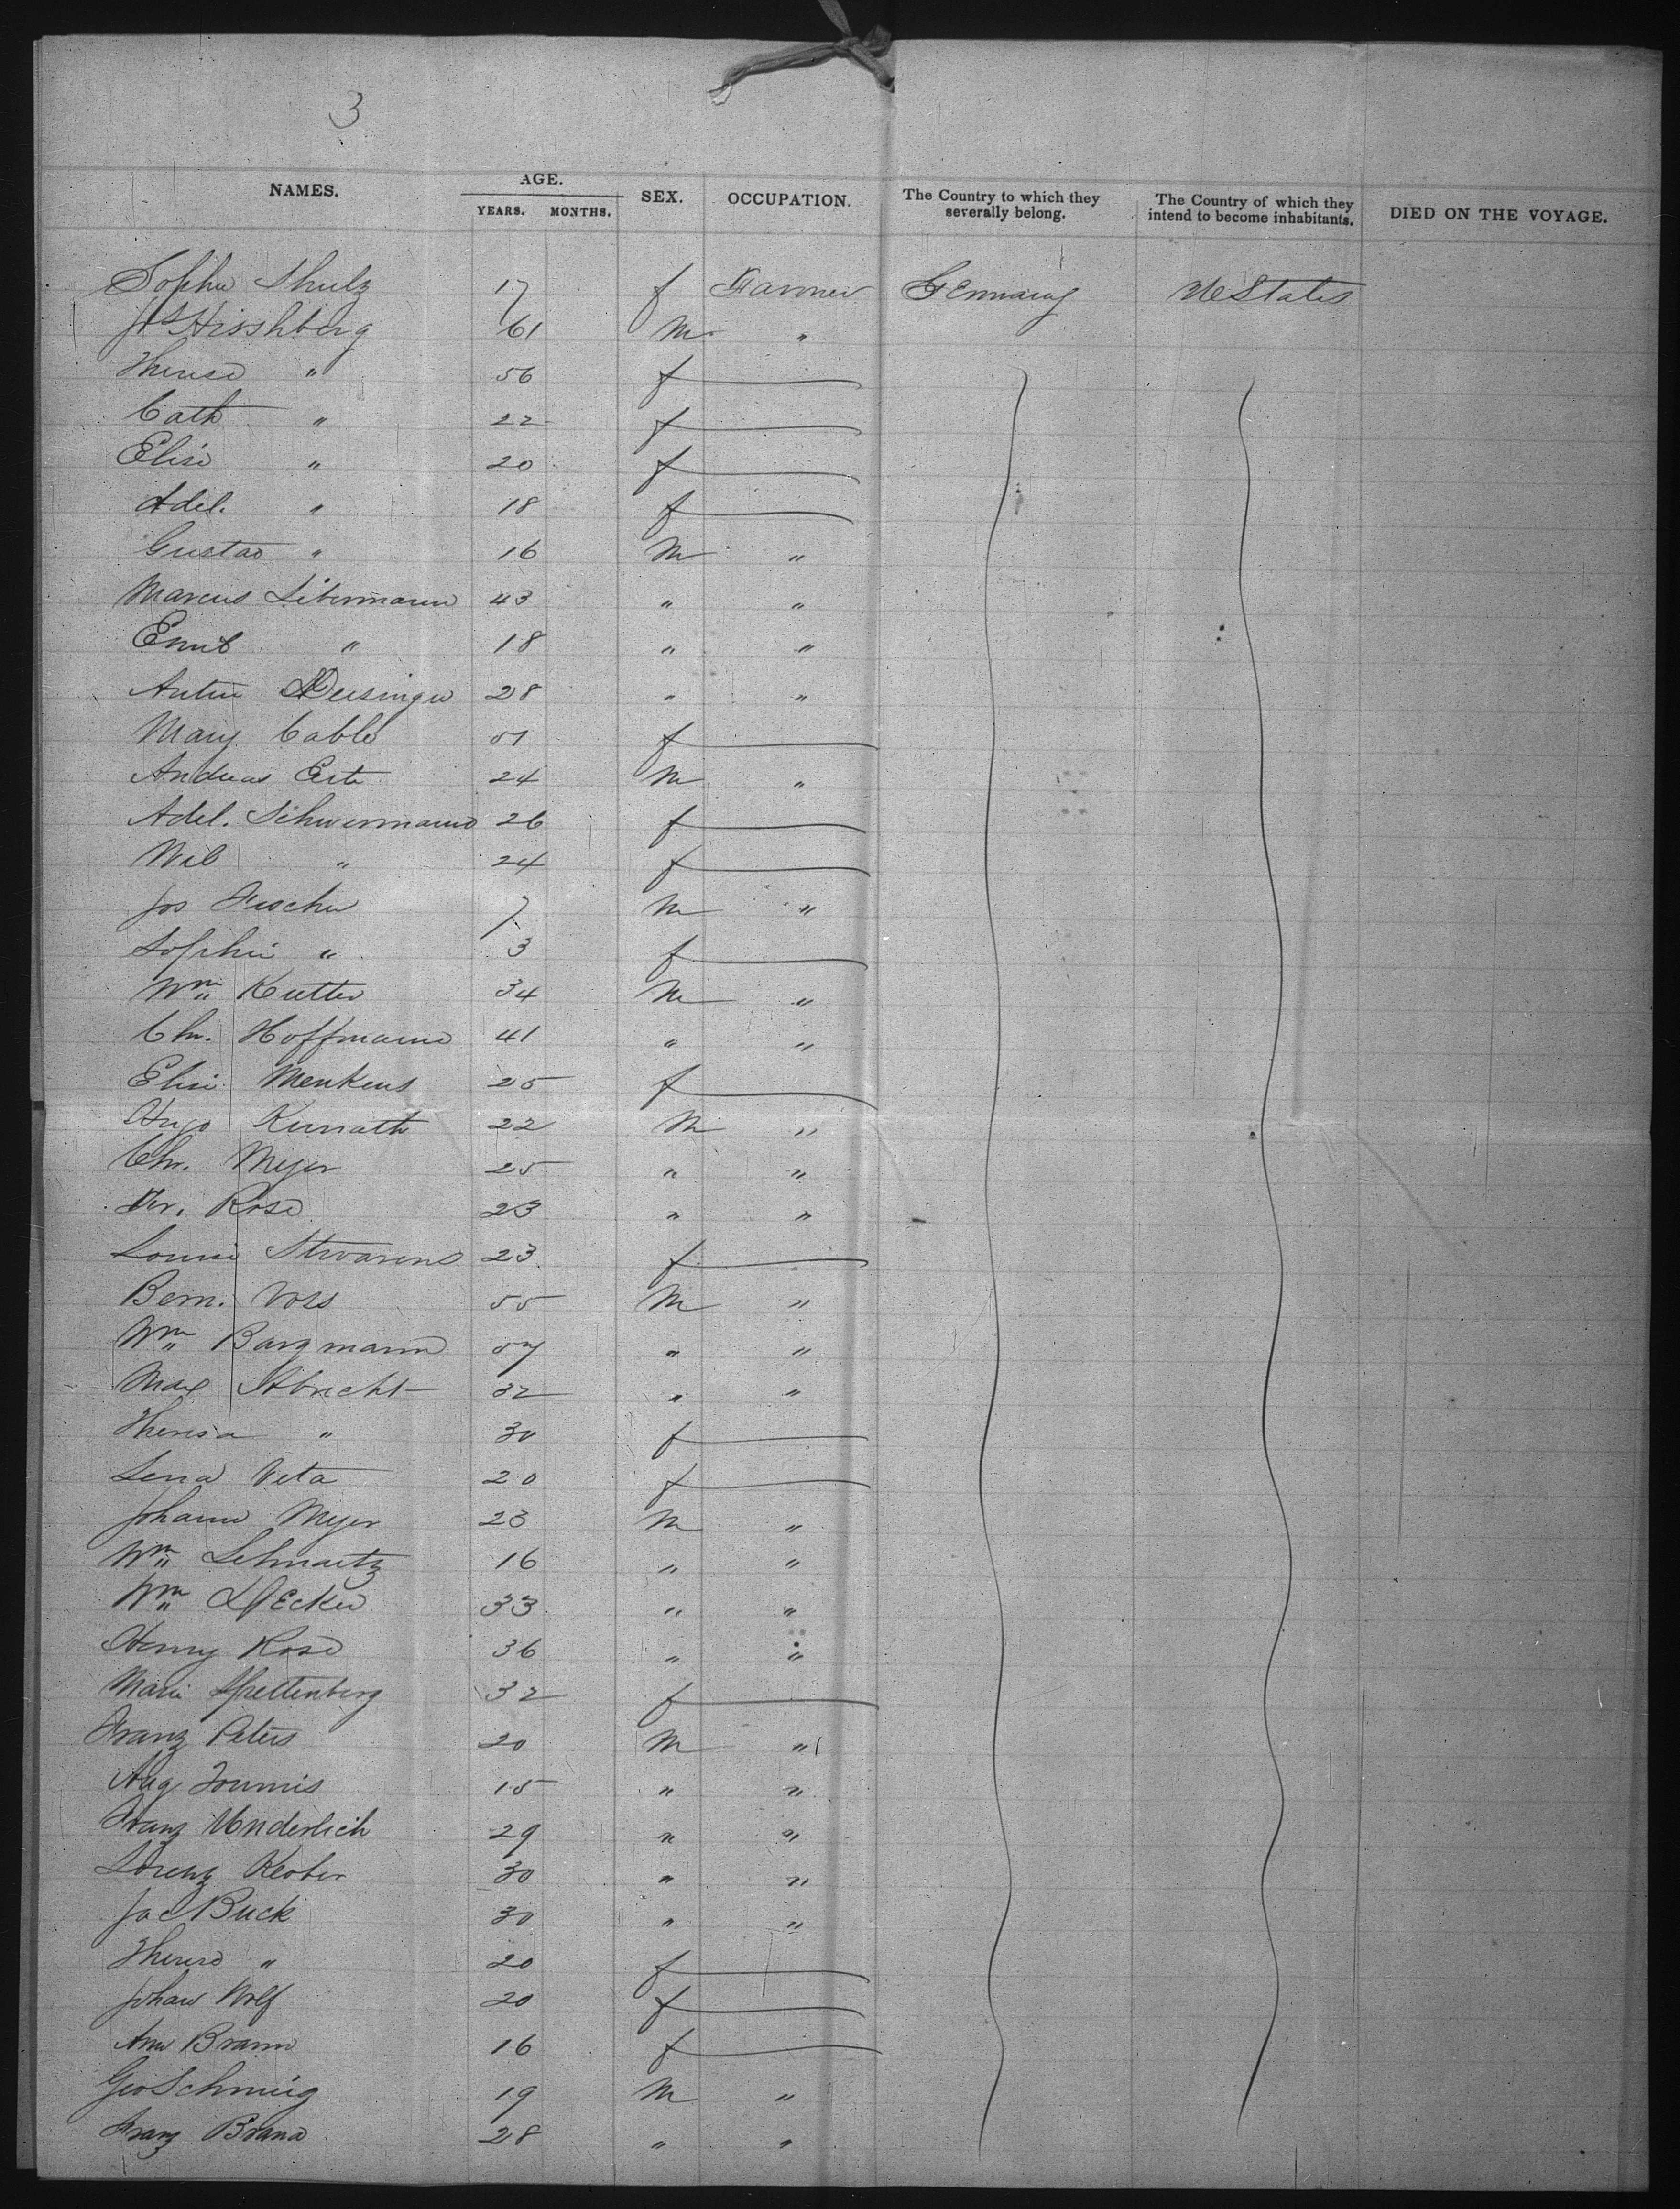 3
NAMES. AGE. SEX. OCCUPATION. The Country to which they severally belong. The Country of which they intend to become inhabitants. DIED ON THE VOYAGE.
YEARS. MONTHS.
Sophie Shulz 17 f Farmer Germany U States
Hirshberg 61 M "
Therese " 56 f
Cath " 22 f
Elise " 20 f
Adel. " 18 f
Gustav " 16 M "
Marcus Libermann 43 " "
Emil " 18 " "
28 " "
Mary Cable 51 f
Andreas 24 M "
Adel. Schwermann 26 f
" 24 f
Jos Fischer 7 M "
Sophie " 3 f
Wm Kutter 34 M "
Chr. Hoffmann 41 " "
Elise Menkens 25 f
Hugo Kunath 22 M "
Chr. Meyer 25 " "
Fr. Rose 23 " "
Louise 23 f
Bern. Voss 55 M "
Wm Bargmann 57 " "
Max Albrecht 32 " "
Theresa " 30 f
Lena Veta 20 f
Johann Meyer 23 M "
Wm 16 " "
Wm Decker 33 " "
Henry Rose 36 " "
Marie Speltenberg 32 f
Franz Peters 20 M "
Aug 15 " "
Franz Underlich 29 " "
Lorenz Kober 30 " "
Jac Buck 30 " "
Therese " 20 f
Johan Wolf 20 f
Ann Braun 16 f
Geo Schmeig 19 M "
Franz Brand 28 " "